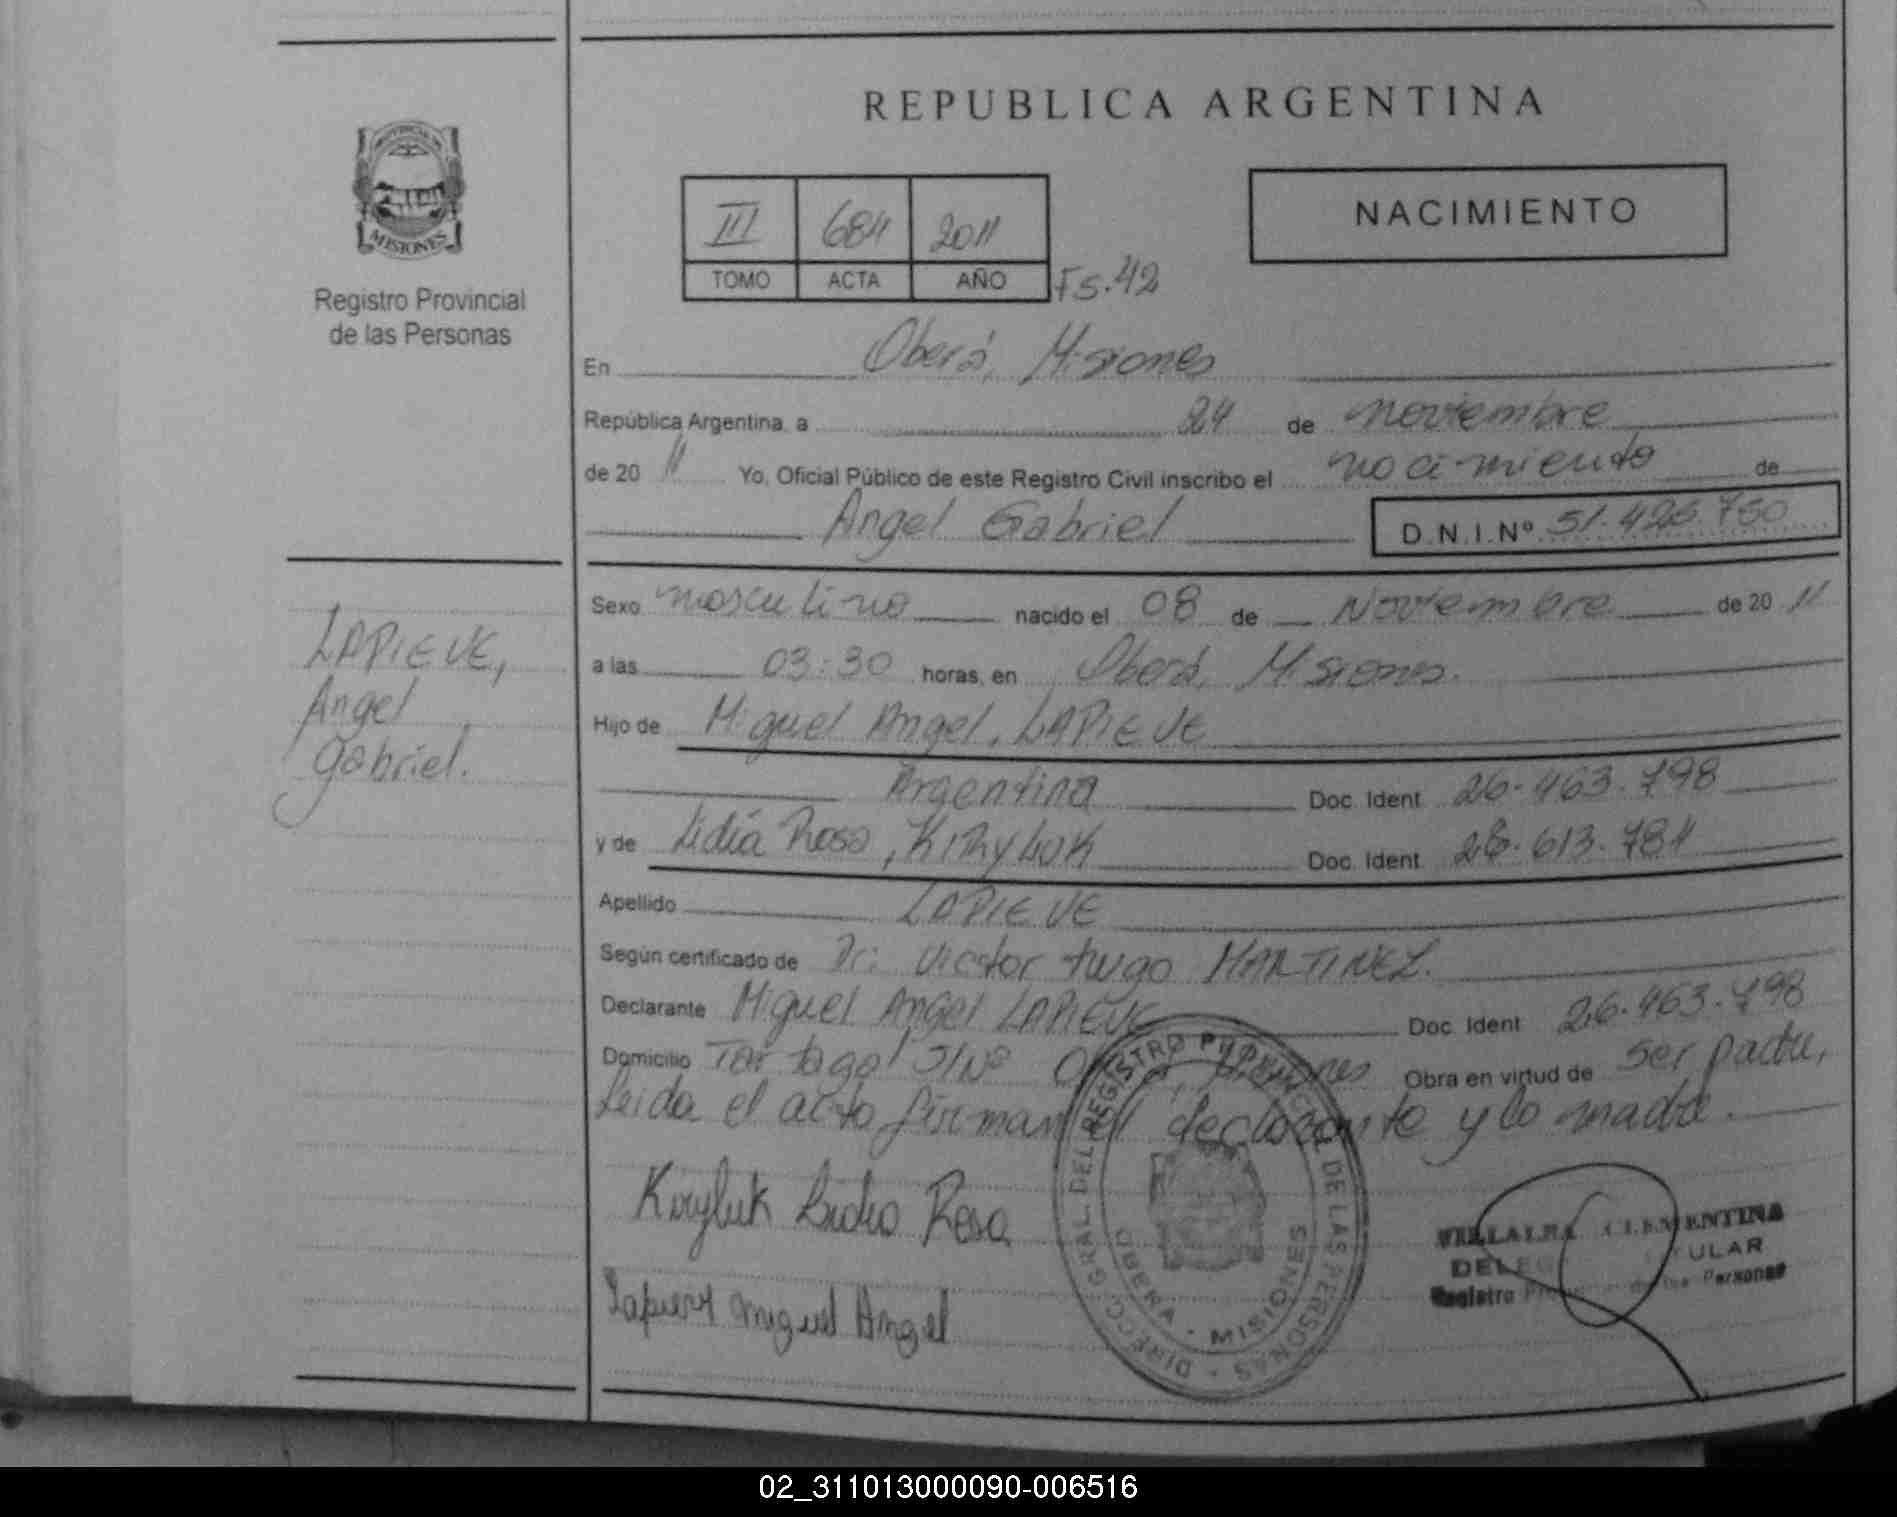 REPUBLICA ARGENTINA
PROVINCIA DE
MISIONES
Registro Provincial
de las Personas
III 684 2011
TOMO ACTA AÑO Fs. 42
NACIMIENTO
En Oberá, Misiones
República Argentina, a 24 de noviembre
de 20 11 Yo, Oficial Público de este Registro Civil inscribo el nacimiento de
Angel Gabriel D.N.I.Nº 51.426.750
LAPIEVE,
Angel
gabriel.
Sexo masculino nacido el 08 de Noviembre de 20 11
a las 03:30 horas, en Oberá, Misiones.
Hijo de Miguel Angel, LAPIEVE
Argentina Doc. Ident 26.463.798
y de Lidia Rosa, KIRYLUK Doc. Ident 28.613.784
Apellido LAPIEVE
Según certificado de Dr. Victor Hugo MARTINEZ.
Declarante Miguel Angel LAPIEVE Doc. Ident 26.463.798
Domicilio Tartagal S/Nº Oberá, Misiones Obra en virtud de ser padre,
Leida el acta firman el declarante y la madre.
Kiryluk Lidia Rosa
Miguel Angel
DIRECC. GRAL. DEL REGISTRO PROVINCIAL DE LAS PERSONAS
OBERA - MISIONES
VILLALBA CLEMENTINA
DELEG TULAR
Registro de las Personas
02_311013000090-006516